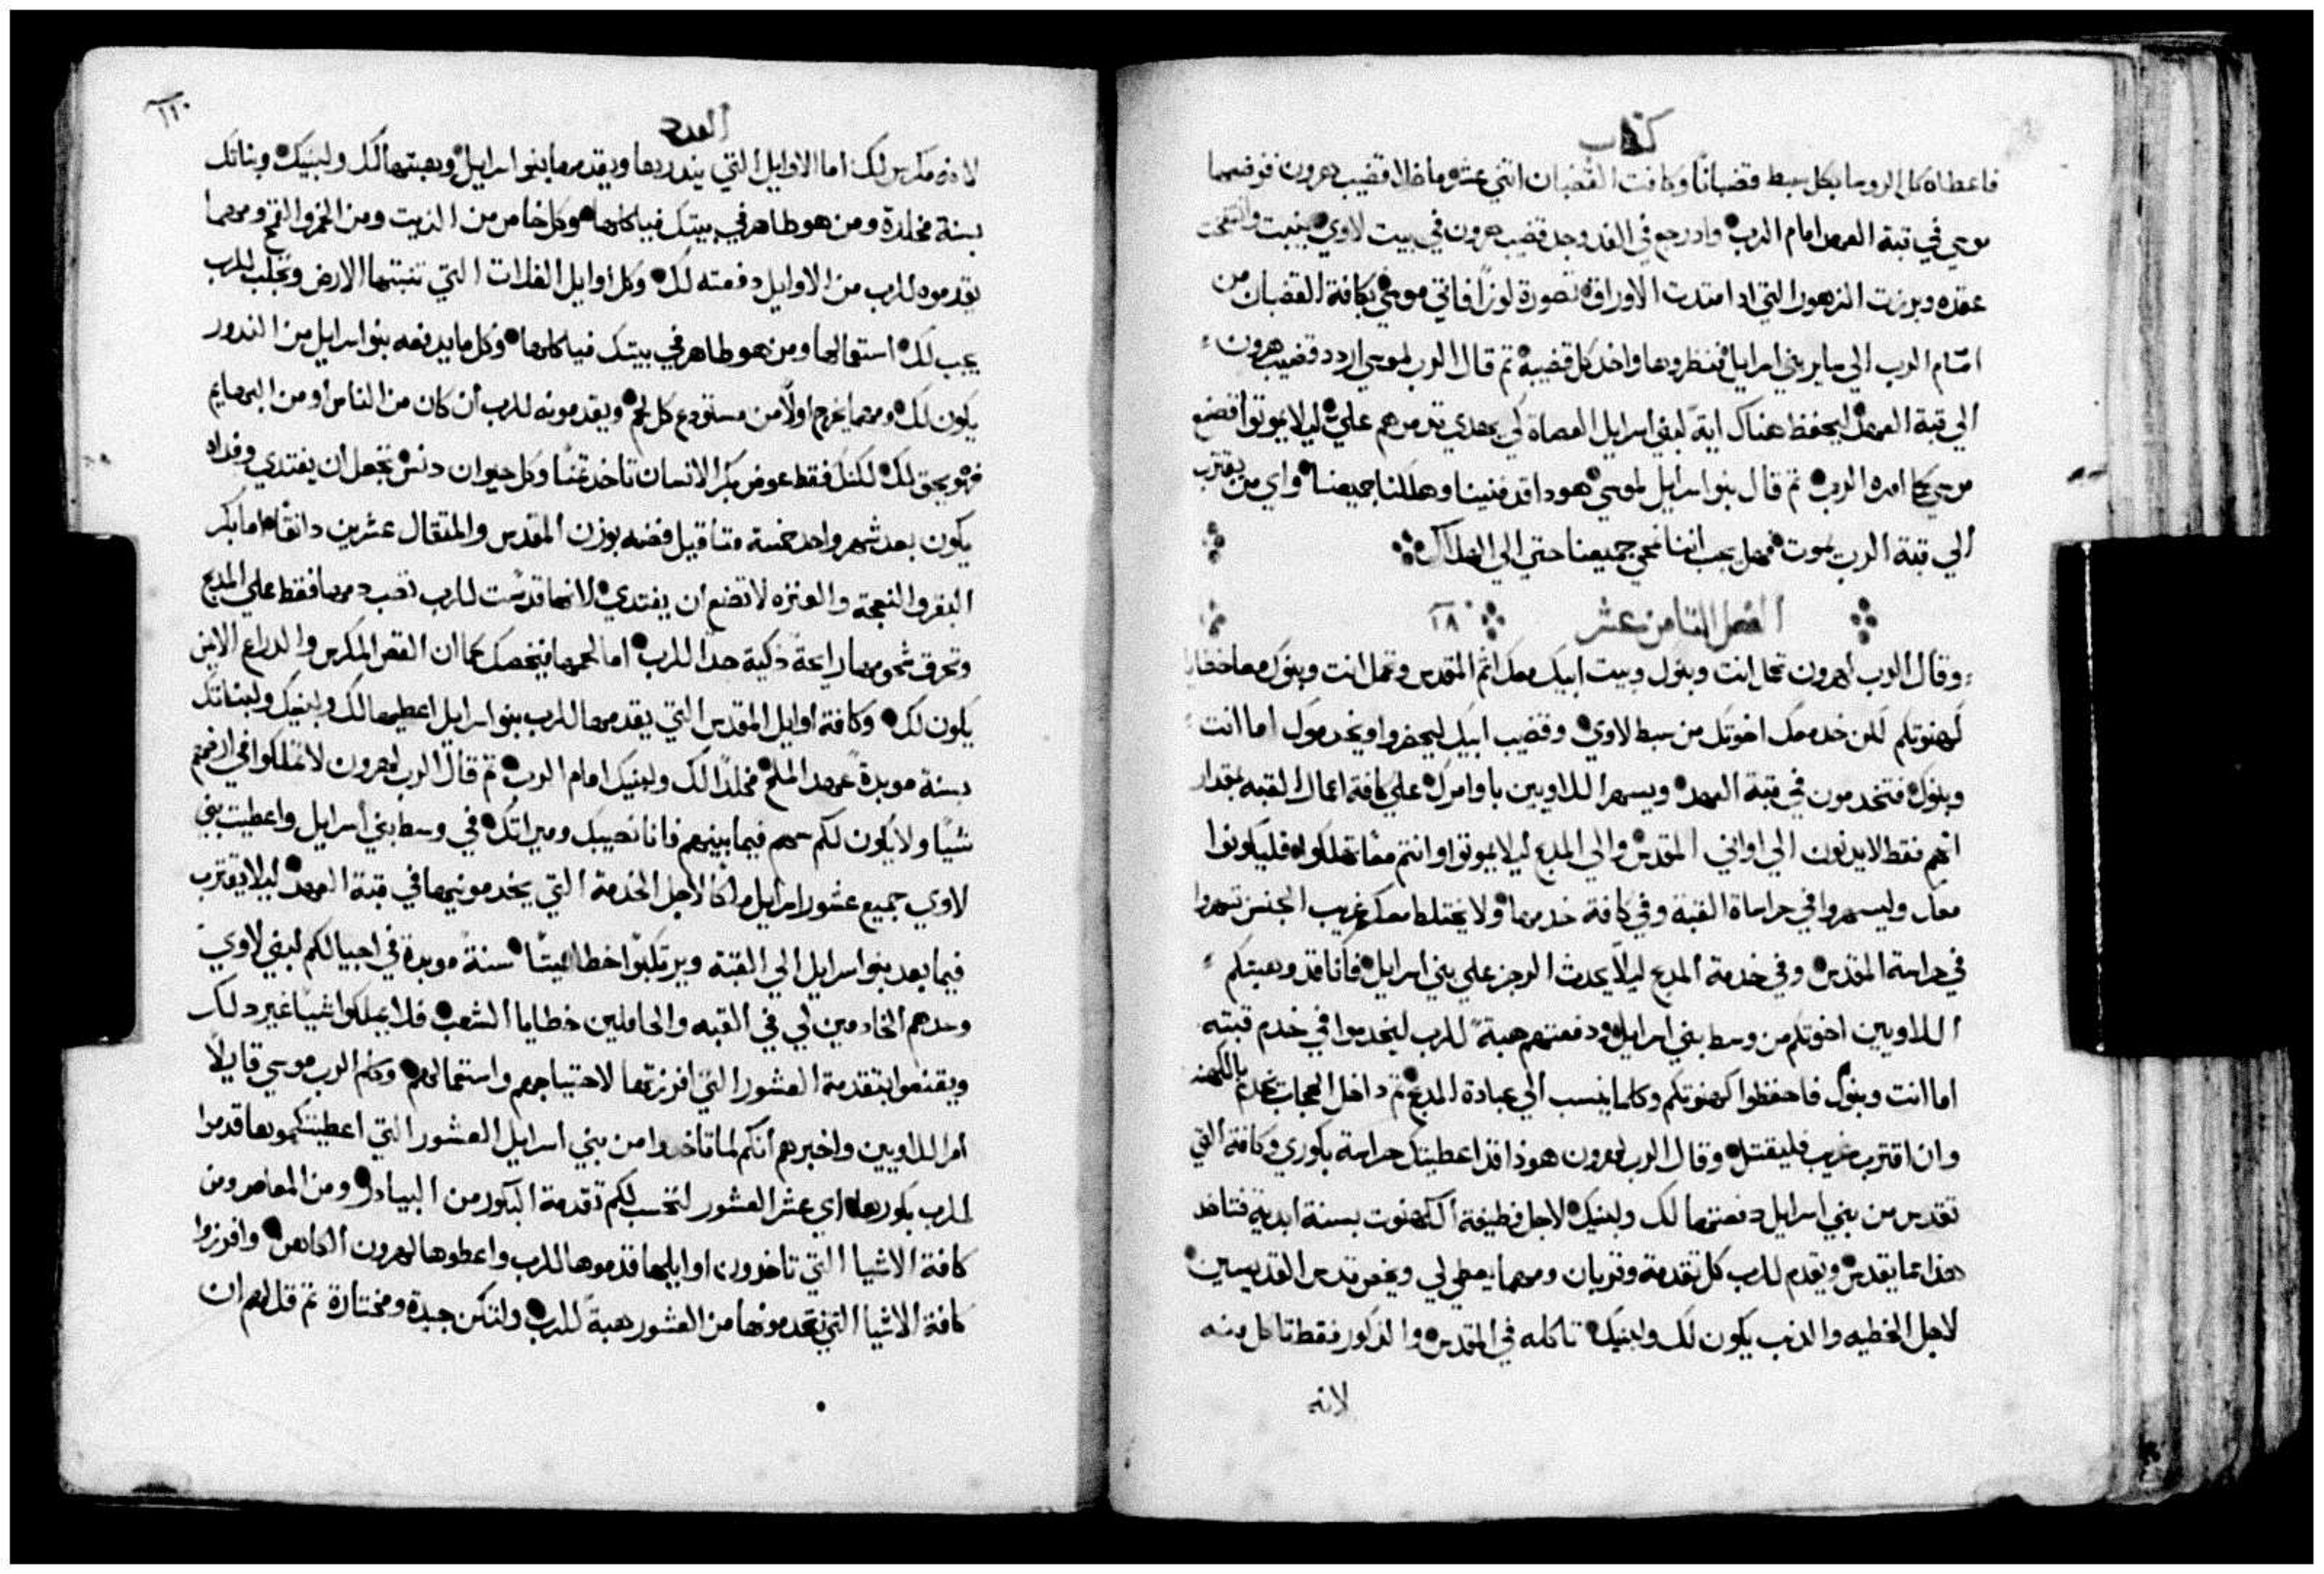 كتاب
فاعطاه كل الروسا بكل سبط قضبانًا وكانت القضبان اثني عشر ما خلا قضيب هرون فوضعهما
موسي في قبة العهد امام الرب واد رجع في الغد وجد قضيب هرون في بيت لاوي ينبت وانتفخت
عقده وبرزت الزهور التي اد امتدت الاوراق تصورة لوزًا فاتي موسي بكافة القضبان من
امام الرب الي ساير بني اسرايل فنظروها واخد كل قضيبه تم قال الرب لموسي اردد قضيب هرون
الي قبة العهد ليحفظ هناك اية لبني اسرايل العصاة لكي يهدي تدمرهم علي ليلا يموتوا فصنع
موسي كما امره الرب تم قال بنو اسرايل لموسي هودا قد فنينا وهلكنا جميعنا واي من يقترب
الي قبة الرب يموت فهل يجب اننا نمحي جميعنا حتي الي الهلاك
الفصل التامن عشر ١٨
وقال الرب لهرون تحمل انت وبنوك وبيت ابيك معك اثم المقدس وتحمل انت وبنوك معا خطايا
كهنوتكم لكن خد معك اخوتك من سبط لاوي وقضيب ابيك ليحضروا ويخدموك اما انت
وبنوك فتخدمون في قبة العهد ويسهر اللاويين باوامرك علي كافة اعمال القبه بمقدار
انهم فقط لا يدنون الي اواني المقدس والي المدبح ليلا يموتوا وانتم معًا تهلكوا فليكونوا
معك وليسهروا في حراساة القبة وفي كافة خدمها ولا يختلط معكم غريب الجنس تسهروا
في حراسة المقدس وفي خدمة المدبح ليلا يحدث الرجز علي بني اسرايل فانا قد وهبتكم
اللاويين اخوتكم من وسط بني اسرايل ودفعتهم هبة للرب ليخدموا في خدم قبته
اما انت وبنوك فاحفظوا كهنوتكم وكلما ينسب الي عبادة المدبح تم داخل الحجاب تخدم بالكهنه
وان اقترب غريب فليقتل وقال الرب لهرون هوذا قد اعطيتك حراسة بكوري وكافة التي
تقدس من بني اسرايل دفعتها لك ولبنيك لاجل وظيفة الكهنوت بسنة ابدية فتاخد
هذا مما يقدس ويقدم للرب كل تقدمة وقربان ومهما يعطي لي ويخص قدس القديسين
لاجل الخطيه والدنب يكون لك ولبنيك تاكله في المقدس والذكور فقط تاكل منه
لانه
العدد
١١٠
لانه مكرس لك اما الاوايل التي ينذر بها ويقدمها بنو اسرايل وهبتها لك ولبنيك وبناتك
بسنة مخلدة ومن هو طاهر في بيتك فياكلها وكل خاص من الزيت ومن الخمر والقمح ومهما
يقدموه للرب من الاوايل دفعته لك وكل اوايل الغلات التي تنبتها الارض وتجلب للرب
يجب لك استعمالها ومن هو طاهر في بيتك فياكلها وكل ما يدفعه بنو اسرايل من الندور
يكون لك ومهما يخرج اولًا من مستودع كل لحم ويقدمونه للرب ان كان من الناس او من البهايم
فهو يحق لك لكن فقط عوض بكر الانسان تاخد تمنًا وكل حيوان دنس تجعل ان يفتدي وفداه
يكون بعد شهر واحد خمسة متاقيل فضه بوزن المقدس والمتقال عشرين دانقًا اما بكر
البقر والنعجة والعنزه لا تضع ان يفتدي لانها قدست للرب تصب دمها فقط علي المدبح
وتحرق شحومها رايحة ذكية جدًا للرب اما لحمها فيخصك كما ان القص المكرس والدراع الايمن
يكون لك وكافة اوايل المقدس التي يقدمها للرب بنو اسرايل اعطيها لك ولبنيك ولبناتك
بسنة موبدة عهد الملح مخلدًا لك ولبنيك امام الرب تم قال الرب لهرون لا تملكوا في ارضهم
شيًا ولا يكون لكم سهم فيما بينهم فانا نصيبك وميراتك في وسط بني اسرايل واعطيت بني
لاوي جميع عشور اسرايل ملكًا لاجل الخدمة التي يخدمونيها في قبة العهد ليلا يقترب
فيما بعد بنو اسرايل الي القبة ويرتكبوا خطا مميتًا سنة موبدة في اجيالكم لبني لاوي
وحدهم الخادمين لي في القبه والحاملين خطايا الشعب فلا يملكوا شيًا غير دلك
ويقنعوا بتقدمة العشور التي افرزتها لاحتياجهم واستعمالهم وكلم الرب موسي قايلًا
امر اللاويين واخبرهم انكم لما تاخدوا من بني اسرايل العشور التي اعطيتكموها قدموا
للرب بكورها اي عشر العشور لتحسب لكم تقدمة البكور من البيادر ومن المعاصر ومن
كافة الاشيا التي تاخدون اوايلها قدموها للرب واعطوها لهرون الكاهن وافرزوا
كافة الاشيا التي تقدمونها من العشور هبةً للرب ولتكن جيدة ومختارة تم قل لهم ان